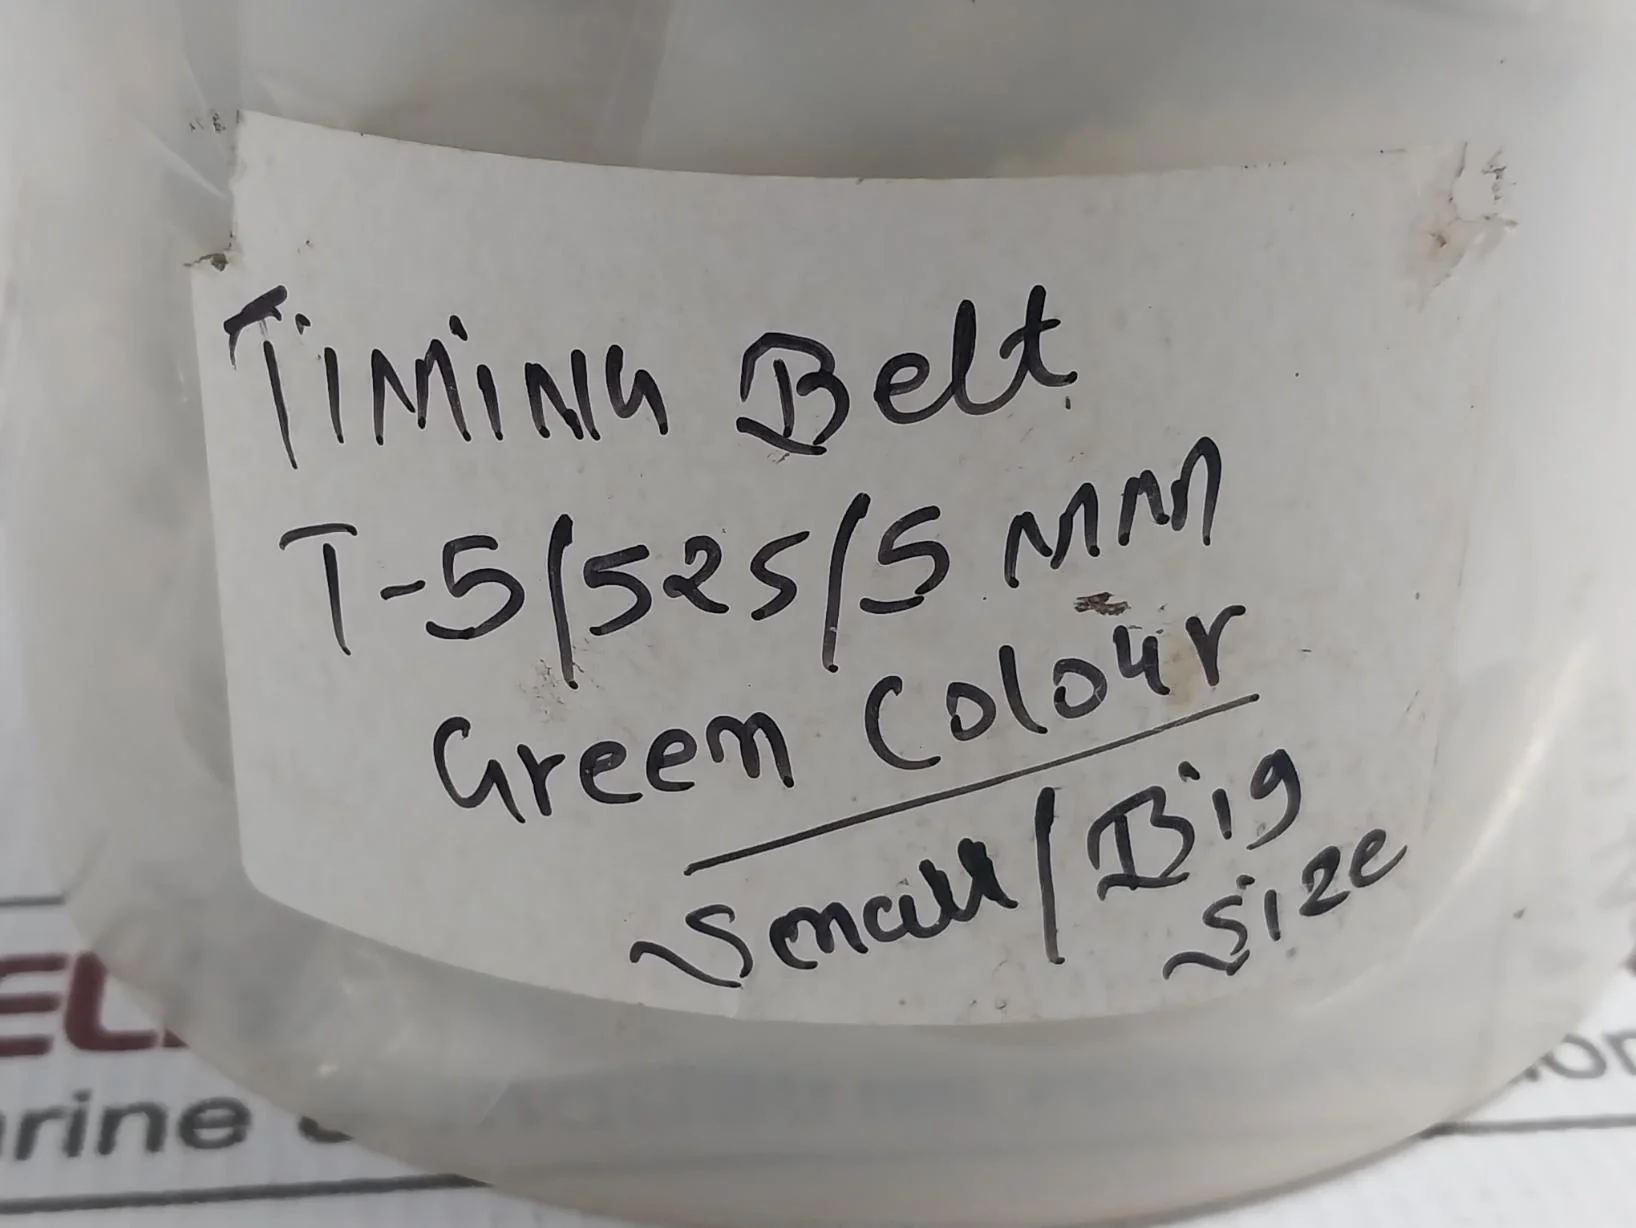 TiMiNG Belt
T-5/525/5 MM
Green Colour
Small/Big
Size